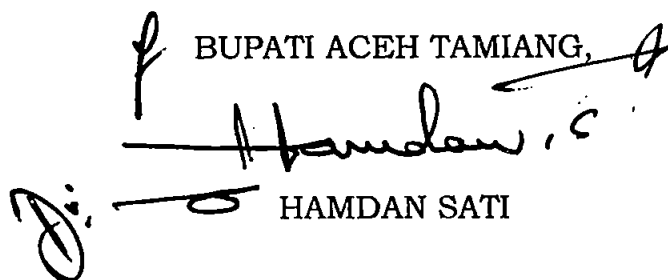 BUPATI ACEH TAMIANG,
Hamdan, S.
HAMDAN SATI